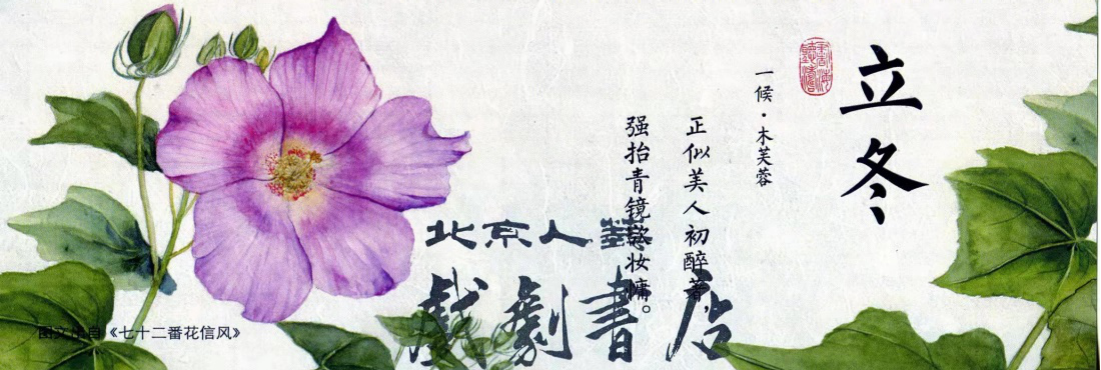 立冬
一候·木芙蓉
正似美人初醉著
强抬青镜欲妆慵。
北京人藝
戲劇書店
图文出自《七十二番花信风》